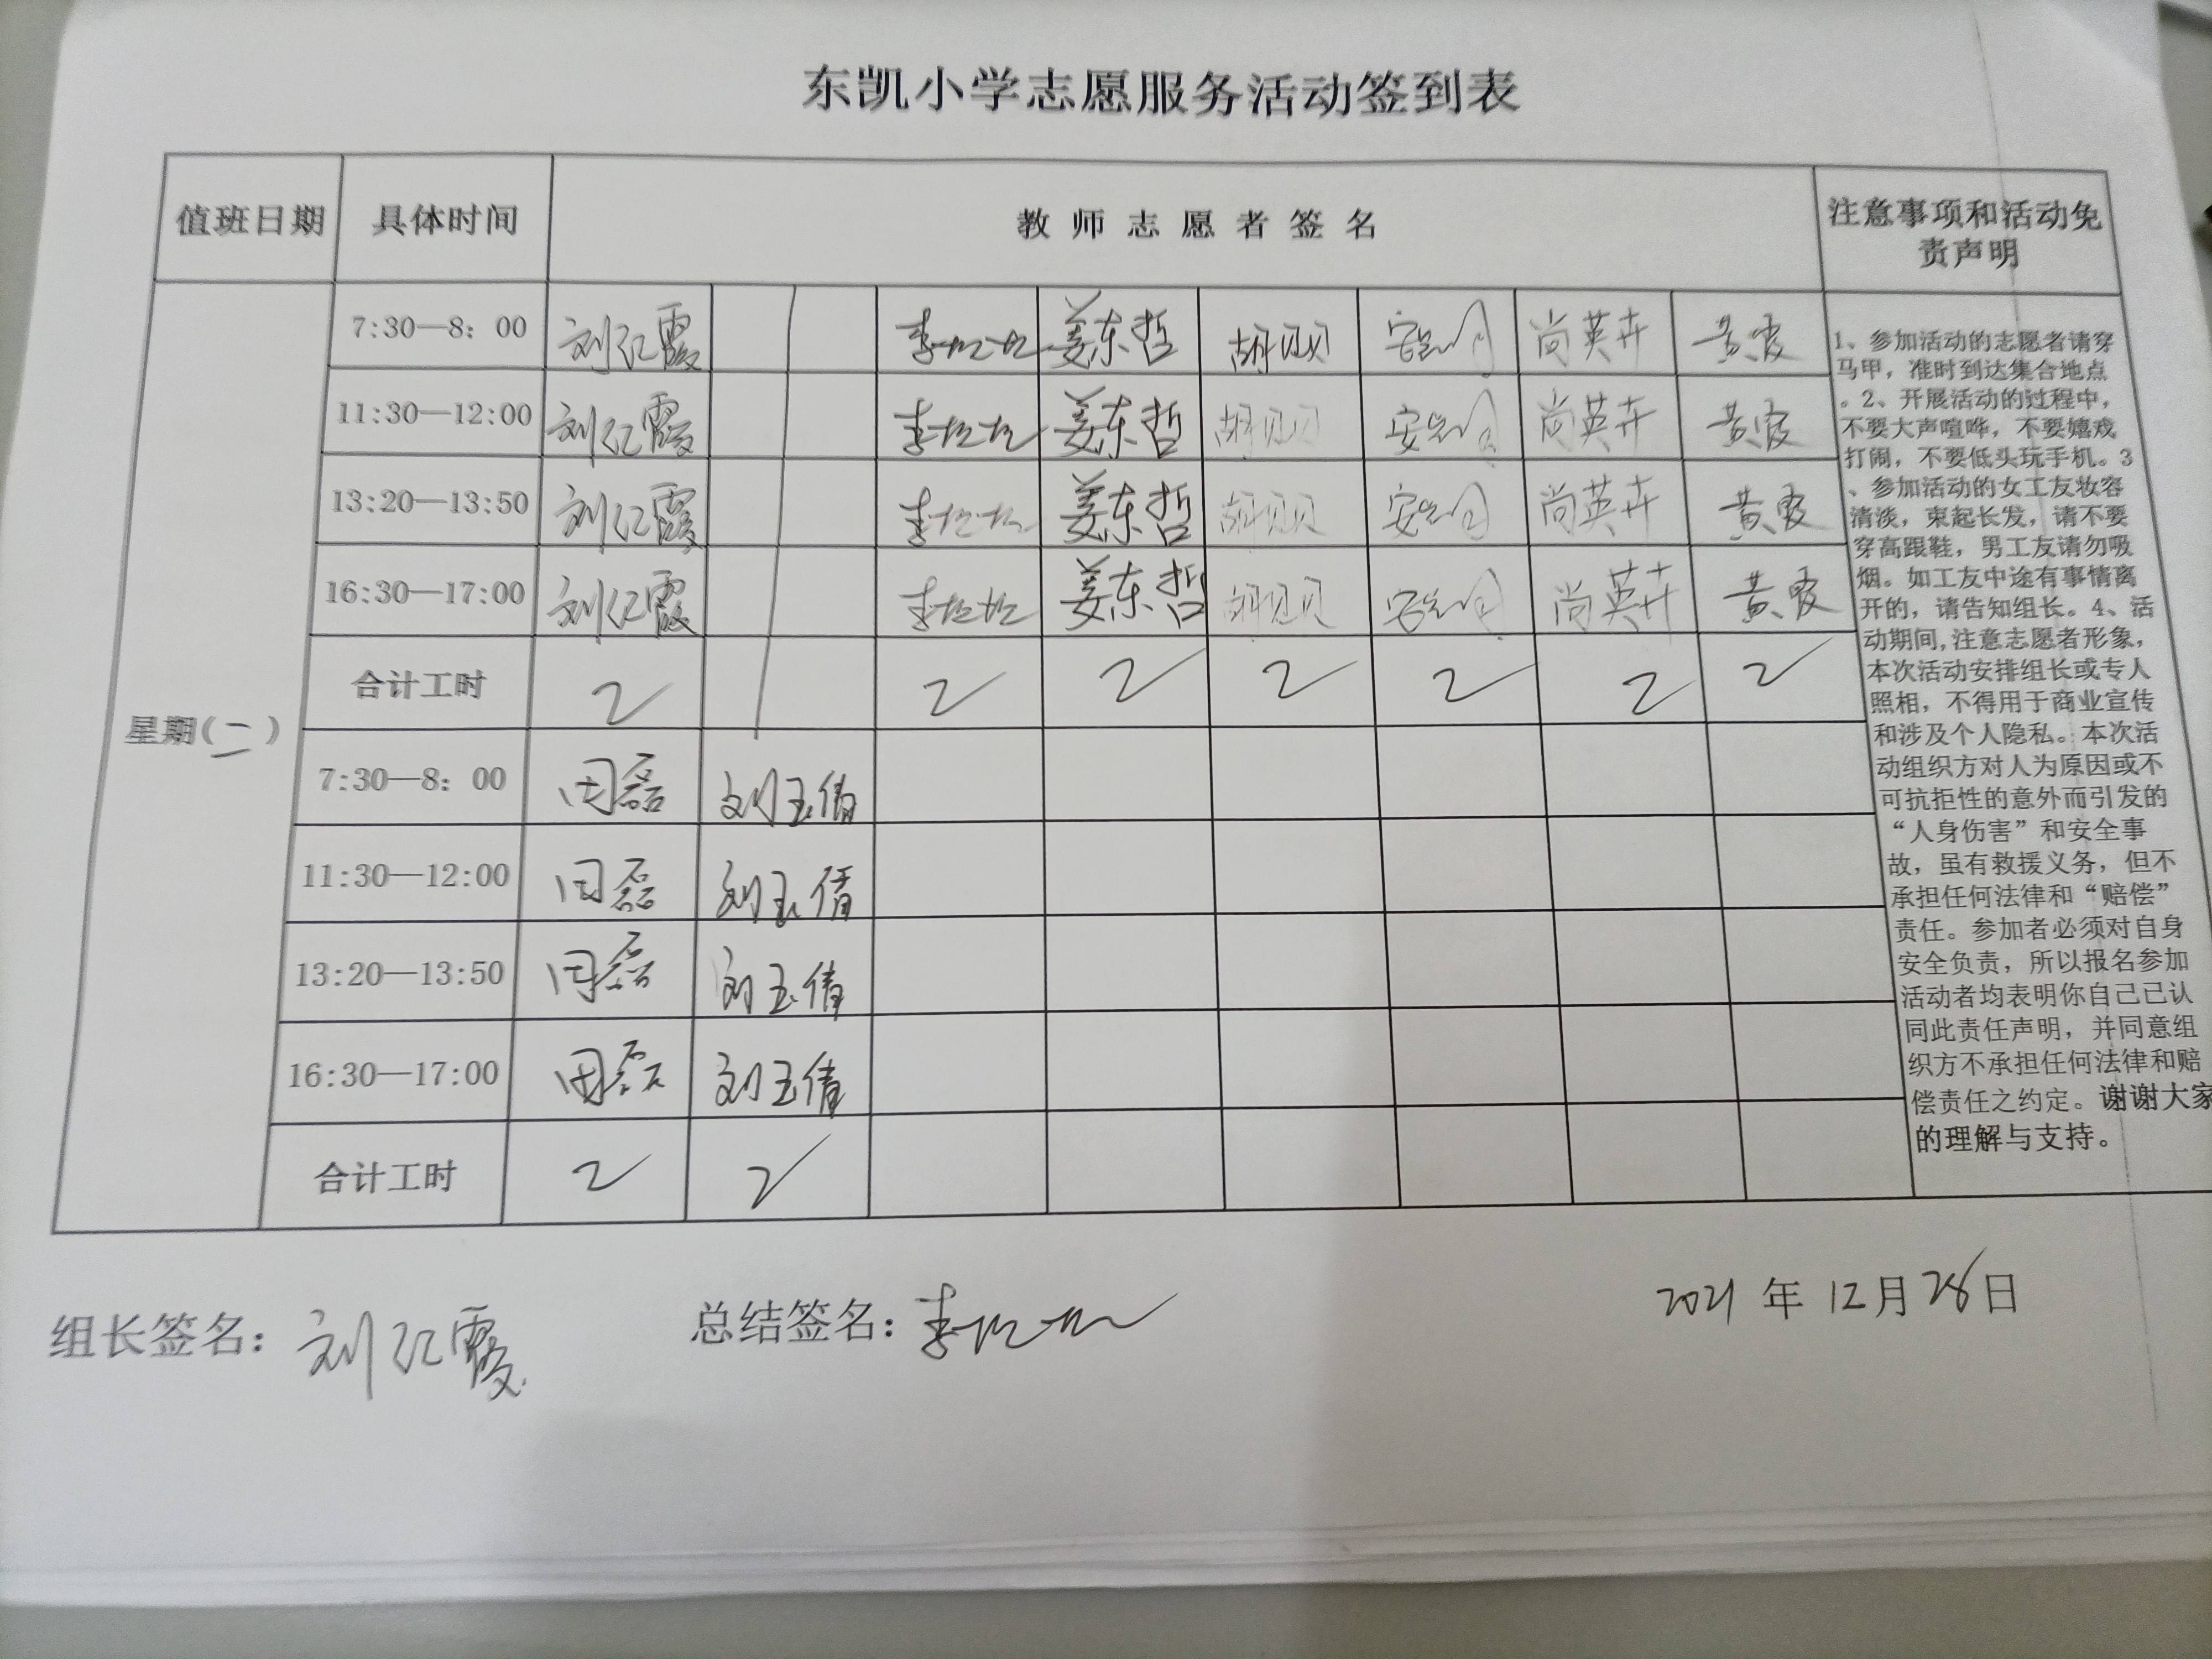 东凯小学志愿服务活动签到表
值班日期 具体时间 教师志愿者签名 注意事项和活动免
责声明
星期(二)
7:30—8：00 刘红霞 姜东哲 胡贝贝 尚英卉 黄霞
11:30—12:00 刘红霞 姜东哲 胡贝贝 尚英卉 黄霞
13:20—13:50 刘红霞 姜东哲 胡贝贝 尚英卉 黄霞
16:30—17:00 刘红霞 姜东哲 胡贝贝 尚英卉 黄霞
合计工时 2 2 2 2 2 2 2
7:30—8：00 田磊 刘玉倩
11:30—12:00 田磊 刘玉倩
13:20—13:50 田磊 刘玉倩
16:30—17:00 田磊 刘玉倩
合计工时 2 2
1、参加活动的志愿者请穿
马甲，准时到达集合地点
。2、开展活动的过程中，
不要大声喧哗，不要嬉戏
打闹，不要低头玩手机。3
、参加活动的女工友妆容
清淡，束起长发，请不要
穿高跟鞋，男工友请勿吸
烟。如工友中途有事情离
开的，请告知组长。4、活
动期间,注意志愿者形象，
本次活动安排组长或专人
照相，不得用于商业宣传
和涉及个人隐私。本次活
动组织方对人为原因或不
可抗拒性的意外而引发的
“人身伤害”和安全事
故，虽有救援义务，但不
承担任何法律和“赔偿”
责任。参加者必须对自身
安全负责，所以报名参加
活动者均表明你自己已认
同此责任声明，并同意组
织方不承担任何法律和赔
偿责任之约定。谢谢大家
的理解与支持。
组长签名：刘红霞 总结签名： 2021年12月28日